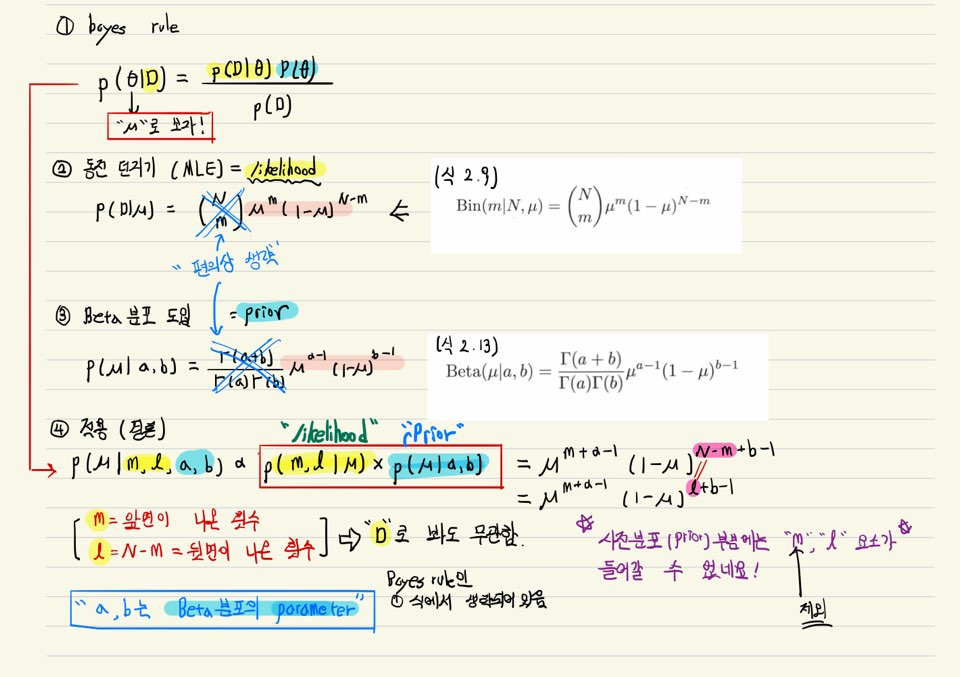 ① bayes rule
p(θ|D) = p(D|θ) P(θ) / p(D)
"μ"로 보자!
② 동전 던지기 (MLE) = likelihood
p(D|μ) = (N m) μ^m (1-μ)^(N-m) ⇐
(식 2.9)
Bin(m|N, μ) = (N m) μ^m (1 − μ)^(N−m)
"편의상 생략"
③ Beta 분포 도입 = prior
p(μ|a,b) = Γ(a+b) / Γ(a)Γ(b) μ^(a-1) (1-μ)^(b-1)
(식 2.13)
Beta(μ|a, b) = Γ(a + b) / Γ(a)Γ(b) μ^(a−1) (1 − μ)^(b−1)
④ 적용 (결론)
"likelihood" "Prior"
p(μ|m,l,a,b) ∝ p(m,l|μ) × p(μ|a,b) = μ^(m+a-1) (1-μ)^(N-m+b-1)
= μ^(m+a-1) (1-μ)^(l+b-1)
m = 앞면이 나온 횟수
l = N-M = 뒷면이 나온 횟수
⇨ "D"로 봐도 무관함.
☆ 사전분포(prior) 부분에는 "m", "l" 요소가 ☆
들어갈 수 없네요!
제외
Bayes rule의
① 식에서 생략되어 있음
"a, b는 Beta분포의 parameter"